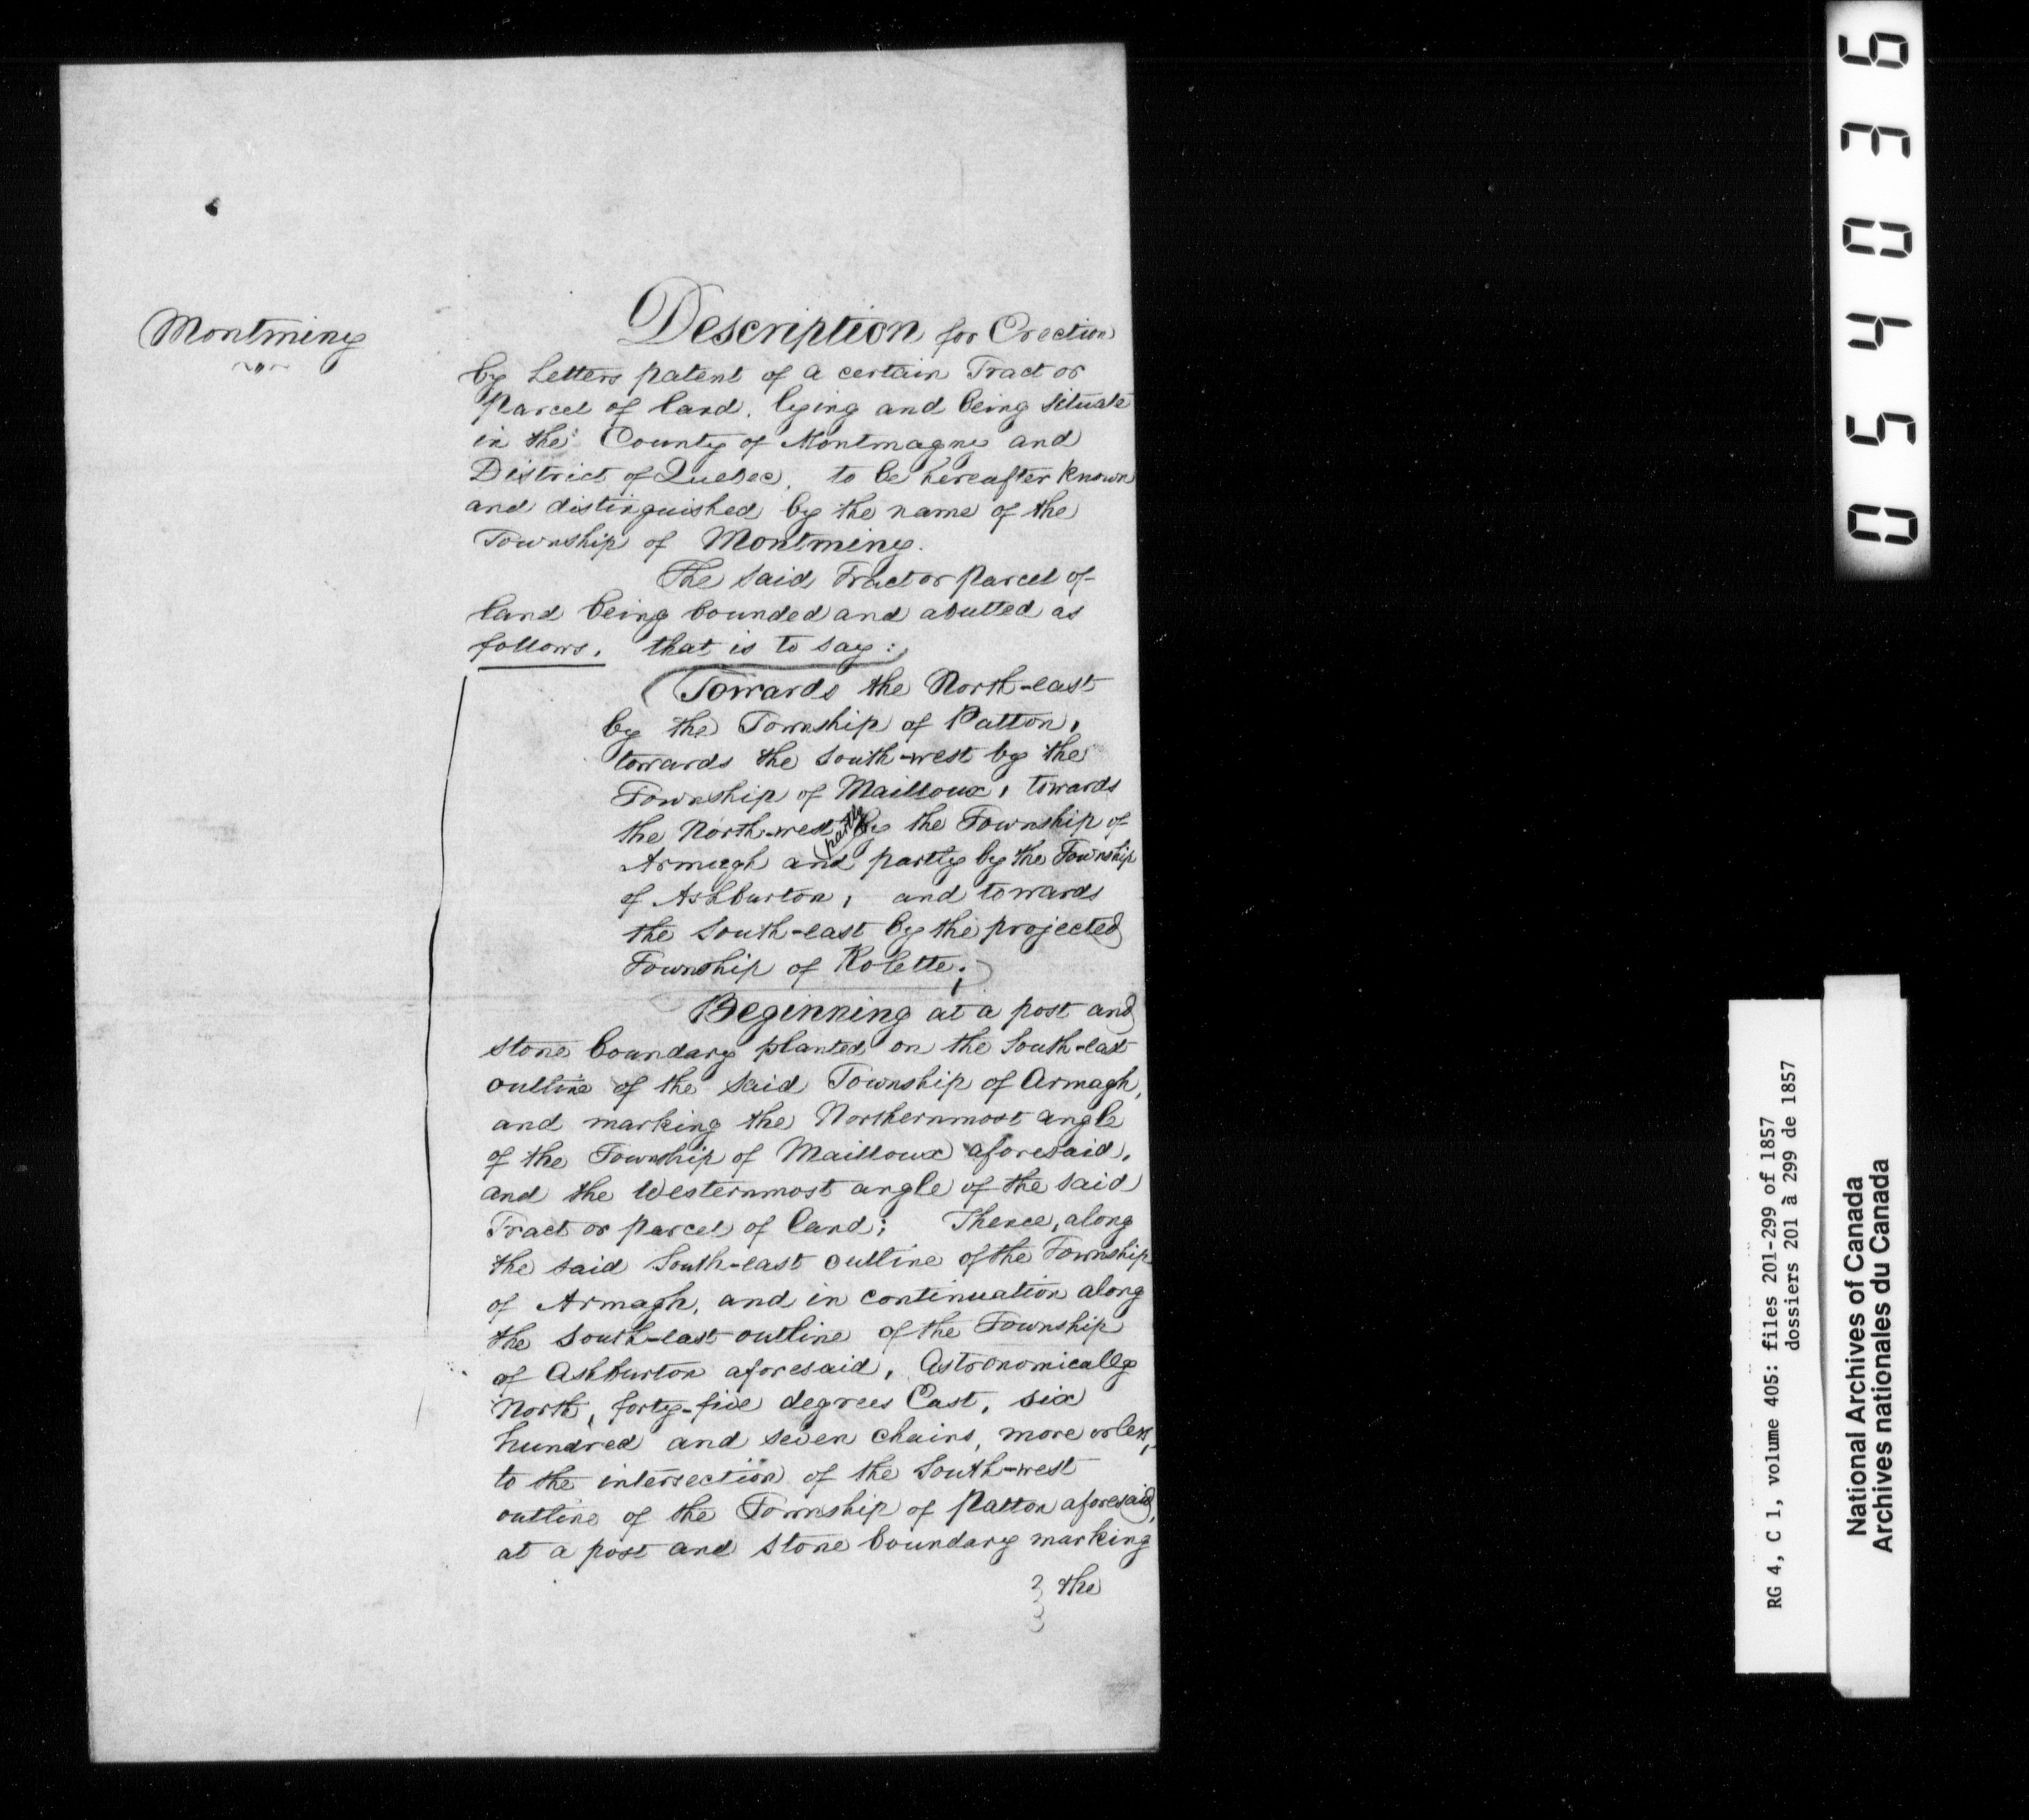 Montminy
Description for Erection
by Letters patent of a certain Tract or
Parcel of land, lying and being situate
in the County of Montmagny and
District of Quebec, to be hereafter known
and distinguished by the name of the
Township of Montminy.
The said Tract or Parcel of
land being bounded and abutted as
follows, that is to say:
(Towards the North-east
by the Township of Patton,
towards the South-west by the
Township of Mailloux, towards
the North-west partly by the Township of
Armagh and partly by the Township
of Ashburton, and towards
the South-east by the projected
Township of Rolette;)
Beginning at a post and
stone boundary planted on the South-east
outline of the said Township of Armagh,
and marking the Northernmost angle
of the Township of Mailloux aforesaid,
and the Westernmost angle of the said
Tract or parcel of land; Thence, along
the said South-east outline of the Township
of Armagh, and in continuation along
the South-east outline of the Township
of Ashburton aforesaid, Astronomically
North, forty-five degrees East, six
hundred and seven chains, more or less,
to the intersection of the South-west
outline of the Township of Patton aforesaid,
at a post and stone boundary marking
the
054036
RG 4, C 1, volume 405: files 201-299 of 1857
dossiers 201 à 299 de 1857
National Archives of Canada
Archives nationales du Canada